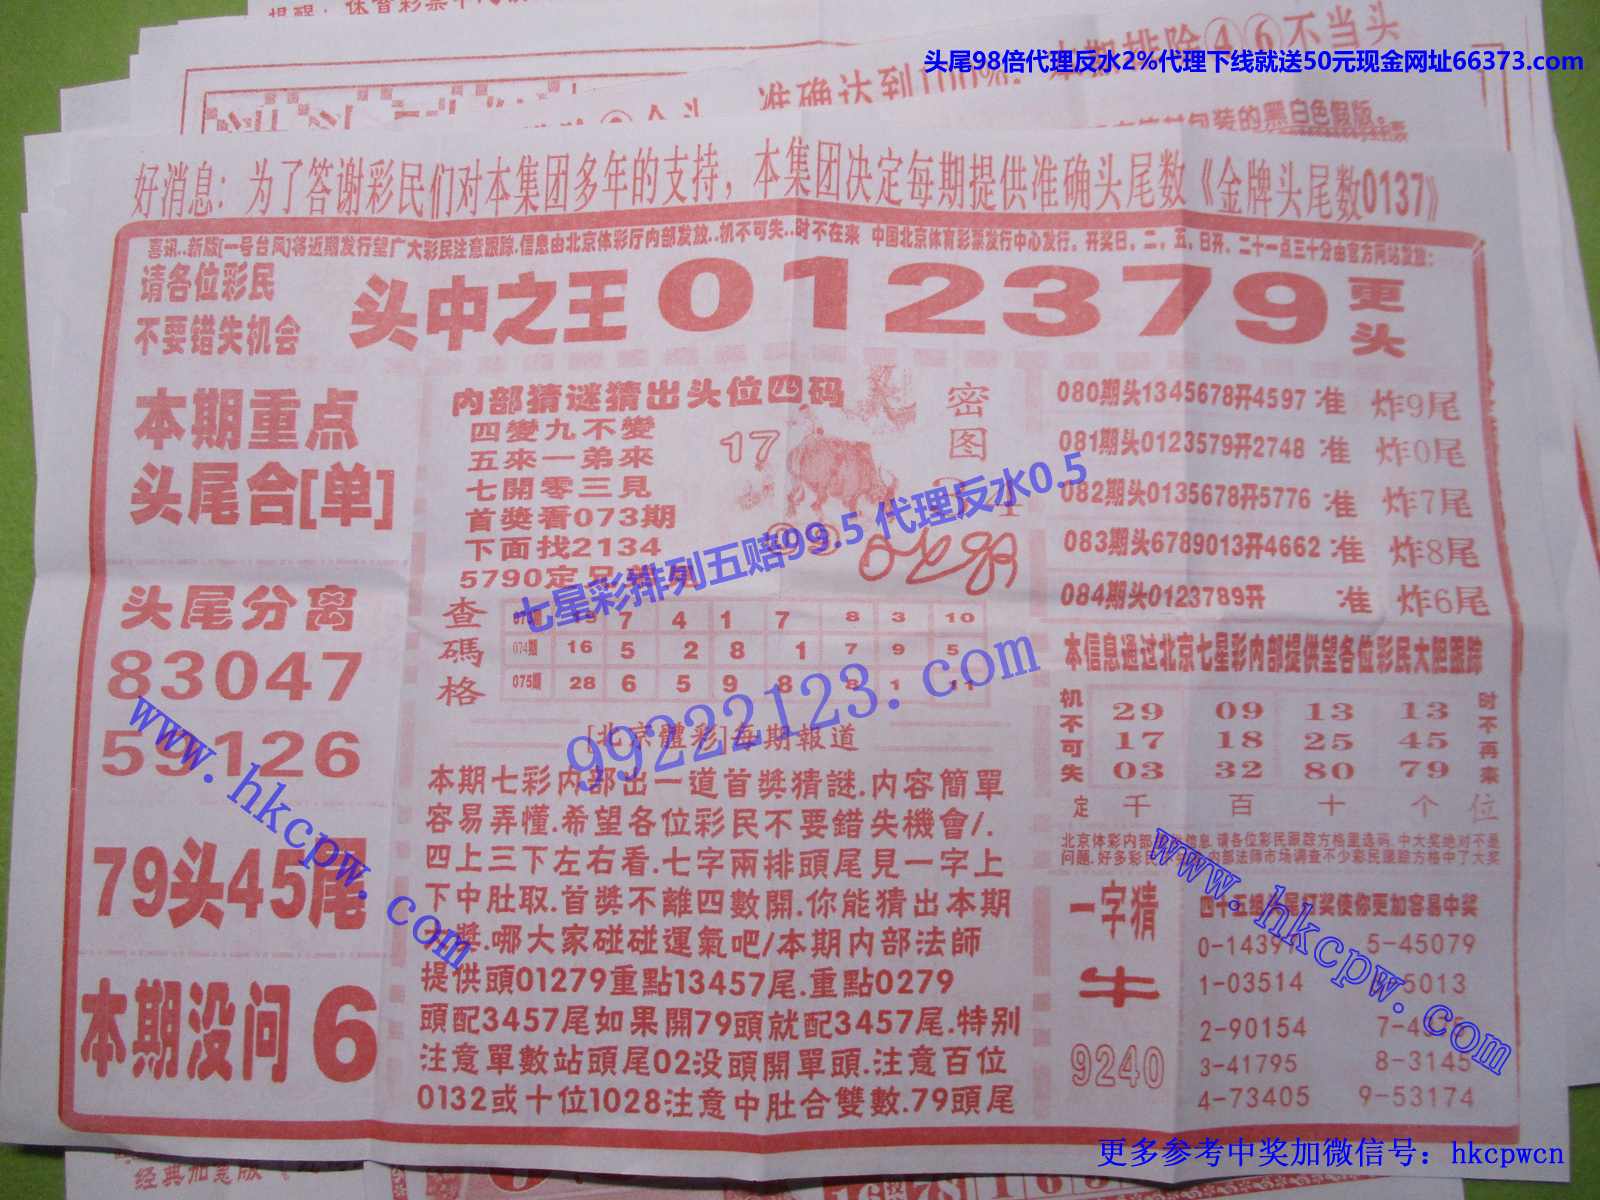 头尾98倍代理反水2%代理下线就送50元现金网址66373.com
准确达到100%.本期排除④⑥不当头
好消息：为了答谢彩民们对本集团多年的支持，本集团决定每期提供准确头尾数《金牌头尾数0137》
喜讯..新版[一号台风]将近期发行望广大彩民注意跟踪.信息由北京体彩厅内部发放..机不可失..时不在来 中国北京体育彩票发行中心发行，开奖日，二，五，日开，二十一点三十分由官方网站发放：
请各位彩民
不要错失机会
头中之王012379
更头
本期重点
头尾合[单]
头尾分离
83047
59126
79头45尾
本期没问6
内部猜谜猜出头位四码
四變九不變
五來一弟來
七開零三見
首獎看073期
下面找2134
密图
17
查碼格
7 4 1 7 8 3 10
074期 16 5 2 8 1 7 9 5
075期 28 6 5 9 8 8 1 11
[北京體彩]每期報道
本期七彩内部出一道首獎猜謎.内容簡單
容易弄懂.希望各位彩民不要錯失機會/.
四上三下左右看.七字兩排頭尾見一字上
下中肚取.首獎不離四數開.你能猜出本期
獎.哪大家碰碰運氣吧/本期内部法師
提供頭01279重點13457尾.重點0279
頭配3457尾如果開79頭就配3457尾.特别
注意單數站頭尾02没頭開單頭.注意百位
0132或十位1028注意中肚合雙數.79頭尾
080期头1345678开4597准 炸9尾
081期头0123579开2748准 炸0尾
082期头0135678开5776准 炸7尾
083期头6789013开4662准 炸8尾
084期头0123789开 准 炸6尾
本信息通过北京七星彩内部提供望各位彩民大胆跟踪
机不可失
29 09 13 13
17 18 25 45
03 32 80 79
时不再来
定 千 百 十 个 位
一字猜
牛
9240
0-1439 5-45079
1-03514 5013
2-90154 7-4
3-41795 8-3145
4-73405 9-53174
七星彩排列五赔99.5 代理反水0.5
99222123.com
www.hkcpw.com
www.hkcpw.com
更多参考中奖加微信号：hkcpwcn